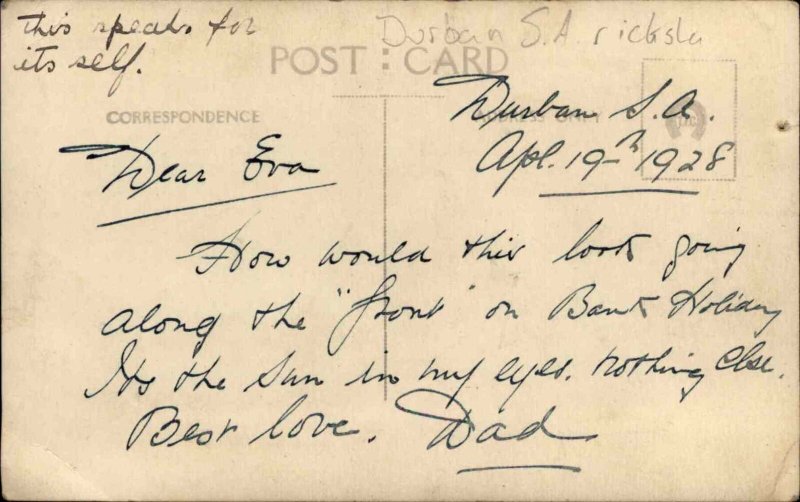 this speaks for
its self.
Durban S.A. ricksha
POST CARD
CORRESPONDENCE
Durban S.A.
Apl. 19th 1928
Dear Eva
How would this look going
along the "front" on Bank Holiday
Its the Sun in my eyes. nothing else.
Best love. Dad